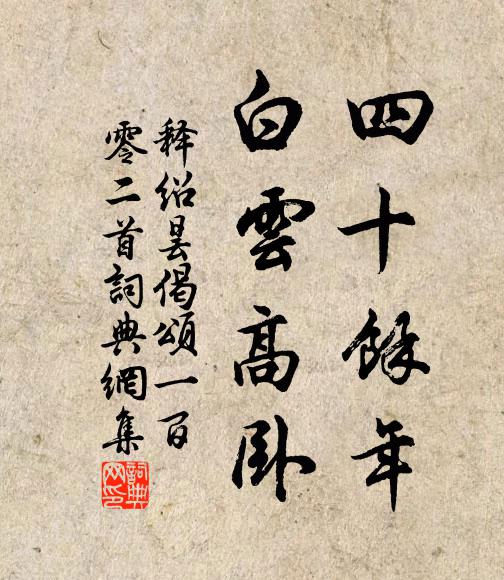 四十餘年
白雲高臥
释绍昙偈頌一百
零二首詞典網集
詞典网印